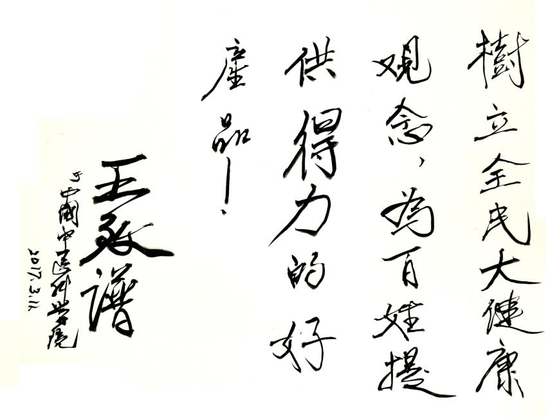 樹立全民大健康
观念，为百姓提
供得力的好
產品！
王致谱
于中國中医科学院
2017.3.11.